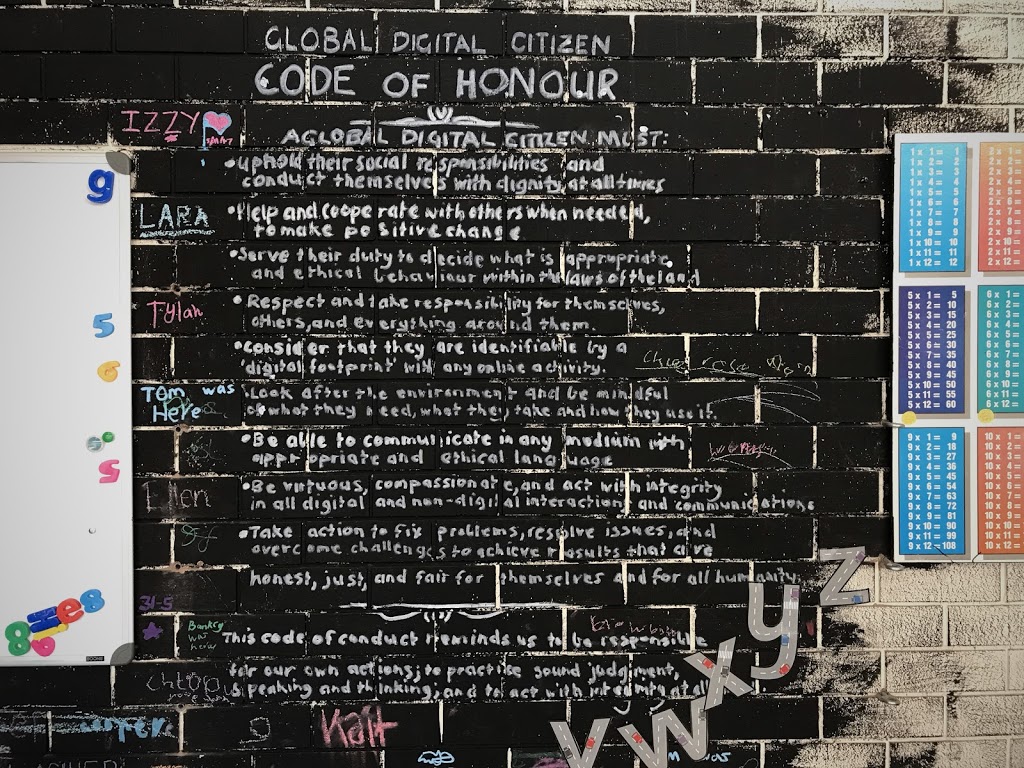 GLOBAL DIGITAL CITIZEN
CODE OF HONOUR
IZZY
A GLOBAL DIGITAL CITIZEN MUST:
•uphold their social responsibilities and
conduct themselves with dignity, at all times
LARA
•Help and cooperate with others when needed,
to make positive change
•Serve their duty to decide what is appropriate,
and ethical behaviour within the laws of the land
Tylah
•Respect and take responsibility for themselves,
others, and everything around them.
•Consider that they are identifiable by a
digital footprint with any online activity.
Tom was
Here
Look after the environment and be mindful
of what they need, what they take and how they use it.
•Be able to communicate in any medium with
appropriate and ethical language
Ellen
•Be virtuous, compassionate, and act with integrity
in all digital and non-digital interactions and communications
•Take action to fix problems, resolve issues, and
overcome challenges to achieve results that are
honest, just, and fair for themselves and for all humanity.
31-5
Banksy
was
here
This code of conduct reminds us to be responsible
for our own actions; to practise sound judgment,
speaking and thinking; and to act with integrity at all
Kait
was
g
5
6
5
5
8
v w x y z
1 x 1 = 1
1 x 2 = 2
1 x 3 = 3
1 x 4 = 4
1 x 5 = 5
1 x 6 = 6
1 x 7 = 7
1 x 8 = 8
1 x 9 = 9
1 x 10 = 10
1 x 11 = 11
1 x 12 = 12
2 x 1 =
2 x 2 =
2 x 3 =
2 x 4 =
2 x 5 =
2 x 6 =
2 x 7 =
2 x 8 =
2 x 9 =
2 x 10 =
2 x 11 =
2 x 12 =
5 x 1 = 5
5 x 2 = 10
5 x 3 = 15
5 x 4 = 20
5 x 5 = 25
5 x 6 = 30
5 x 7 = 35
5 x 8 = 40
5 x 9 = 45
5 x 10 = 50
5 x 11 = 55
5 x 12 = 60
6 x 1 =
6 x 2 =
6 x 3 =
6 x 4 =
6 x 5 =
6 x 6 =
6 x 7 =
6 x 8 =
6 x 9 =
6 x 10 =
6 x 11 =
6 x 12 =
9 x 1 = 9
9 x 2 = 18
9 x 3 = 27
9 x 4 = 36
9 x 5 = 45
9 x 6 = 54
9 x 7 = 63
9 x 8 = 72
9 x 9 = 81
9 x 10 = 90
9 x 11 = 99
9 x 12 = 108
10 x 1 =
10 x 2 =
10 x 3 =
10 x 4 =
10 x 5 =
10 x 6 =
10 x 7 =
10 x 8 =
10 x 9 =
10 x 10 =
10 x 11 =
10 x 12 =